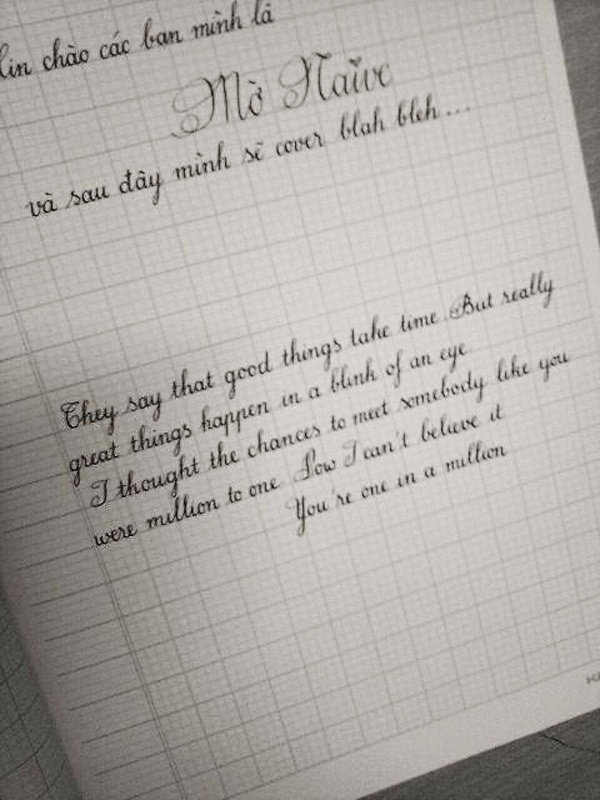 Xin chào các bạn mình là
Mờ Naive
và sau đây mình sẽ cover blah bleh...
They say that good things take time. But really
great things happen in a blink of an eye
I thought the chances to meet somebody like you
were million to one. Now I can't believe it
You're one in a million